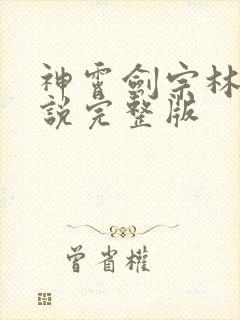 神霄劍宗林
說完整版
曾省權